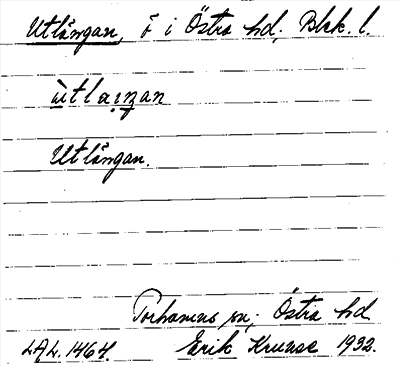 Utlängan, ö i Östra hd, Blek. l.
ùtlaŋan
Utlängan.
Torhamns sn, Östra hd
LAL. 1464. Erik Kruuse 1932.